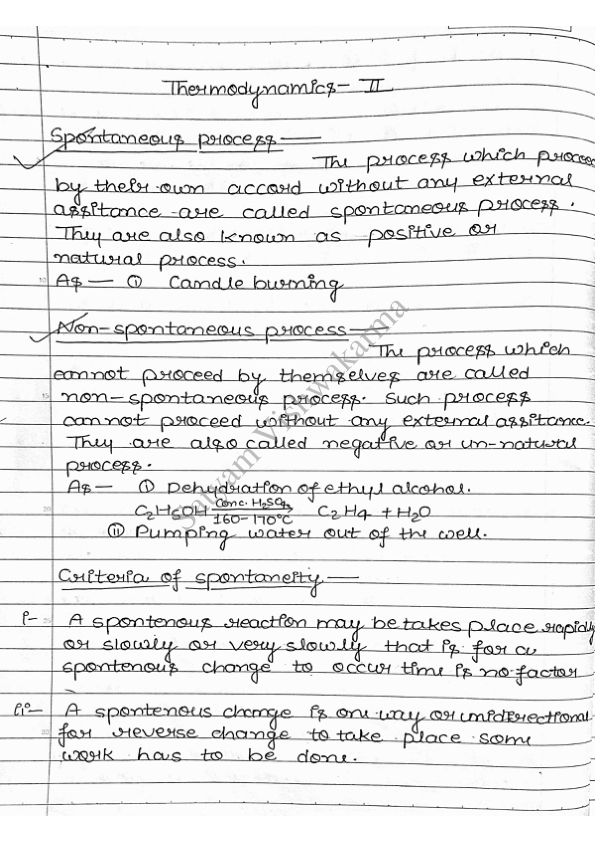 Thermodynamics- II
Spontaneous process —
The process which proceed
by their own accord without any external
assitance are called spontaneous process.
They are also known as positive or
natural process.
As — ① Candle burning
Non-spontaneous process —
The process which
cannot proceed by themselves are called
non-spontaneous process. Such process
cannot proceed without any external assitance.
They are also called negative or un-natural
process.
As — ① Dehydration of ethyl alcohol.
C2H5OH Conc. H2SO4 160-170°C C2H4 + H2O
⑪ Pumping water out of the well.
Criteria of spontaneity —
i- A spontenous reaction may be takes place rapidly
or slowly or very slowly that is for a
spontenous change to occur time is no factor
ii- A spontenous change is one way or unidirectional
for reverse change to take place some
work has to be done.
Satyam Vishwakarma